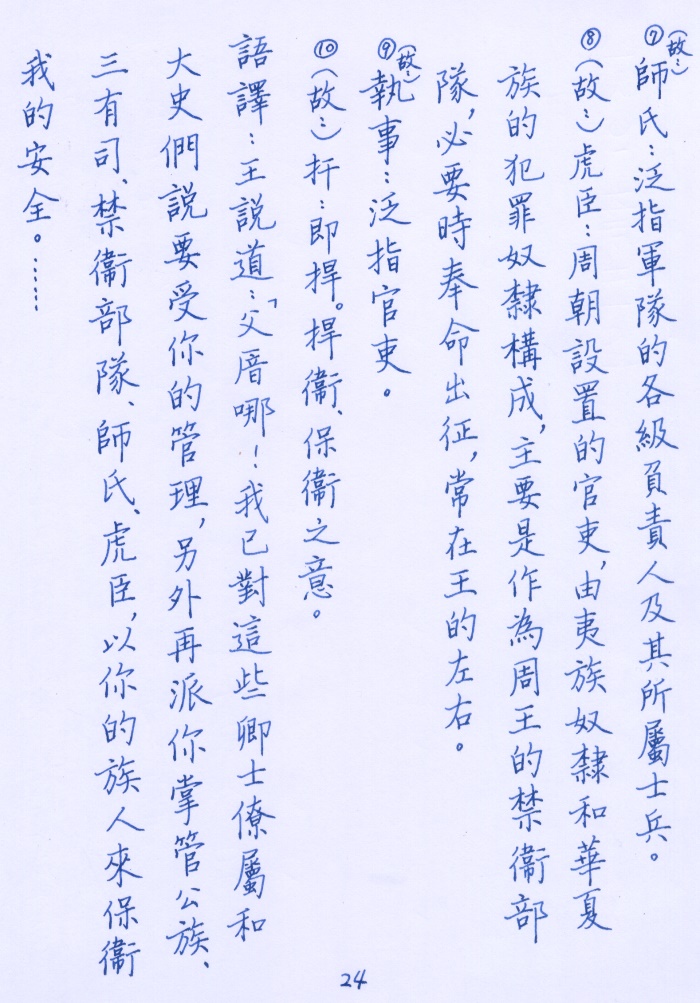 ⑦(故:)師氏:泛指軍隊的各級負責人及其所屬士兵。
⑧(故:)虎臣:周朝設置的官吏,由夷族奴隸和華夏
族的犯罪奴隸構成,主要是作為周王的禁衛部
隊,必要時奉命出征,常在王的左右。
⑨(故:)執事:泛指官吏。
⑩(故:)扞:即捍。捍衛、保衛之意。
語譯:王說道:「父厝哪!我已對這些卿士僚屬和
大史們說要受你的管理,另外再派你掌管公族、
三有司、禁衛部隊、師氏、虎臣,以你的族人來保衛
我的安全。……
24